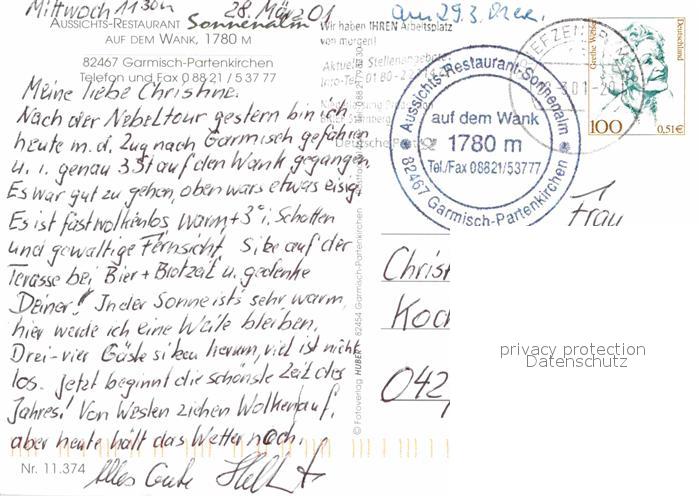 Mittwoch 11³⁰h 28. März 01
AUSSICHTS-RESTAURANT Sonnenalm
AUF DEM WANK, 1780 M
82467 Garmisch-Partenkirchen
Telefon und Fax 0 88 21 / 5 37 77
Meine liebe Christine.
Nach der Nebeltour gestern bin ich
heute m. d. Zug nach Garmisch gefahren
u. i. genau 3 St auf den Wank gegangen.
Es war gut zu gehen, oben wars etwas eisig.
Es ist fast wolkenlos warm +3° i. Schatten
und gewaltige Fernsicht. Size auf der
Terasse bei Bier + Brotzeit u. gedenke
Deiner! In der Sonne ists sehr warm,
hier werde ich eine Weile bleiben.
Drei-vier Gäste sizen herum, viel ist nicht
los. Jetzt beginnt die schönste Zeit des
Jahres! Von Westen ziehen Wolken auf,
aber heute hält das Wetter noch.
Alles Gute
Nr. 11.374
© Fotoverlag HUBER 82454 Garmisch-Partenkirchen
am 29.3.01
Wir haben IHREN Arbeitsplatz
von morgen!
Aktuelle Stellenangebote
Info-Tel. 01 80 - 2 2
Deutsche Post
Aussichts-Restaurant-Sonnenalm
auf dem Wank
1780 m
Tel./Fax 08821/53777
82467 Garmisch-Partenkirchen
BRIEFZENTRUM
Grethe Weiser
Deutschland
100
0,51 €
Frau
Christ
Koch
042
privacy protection
Datenschutz